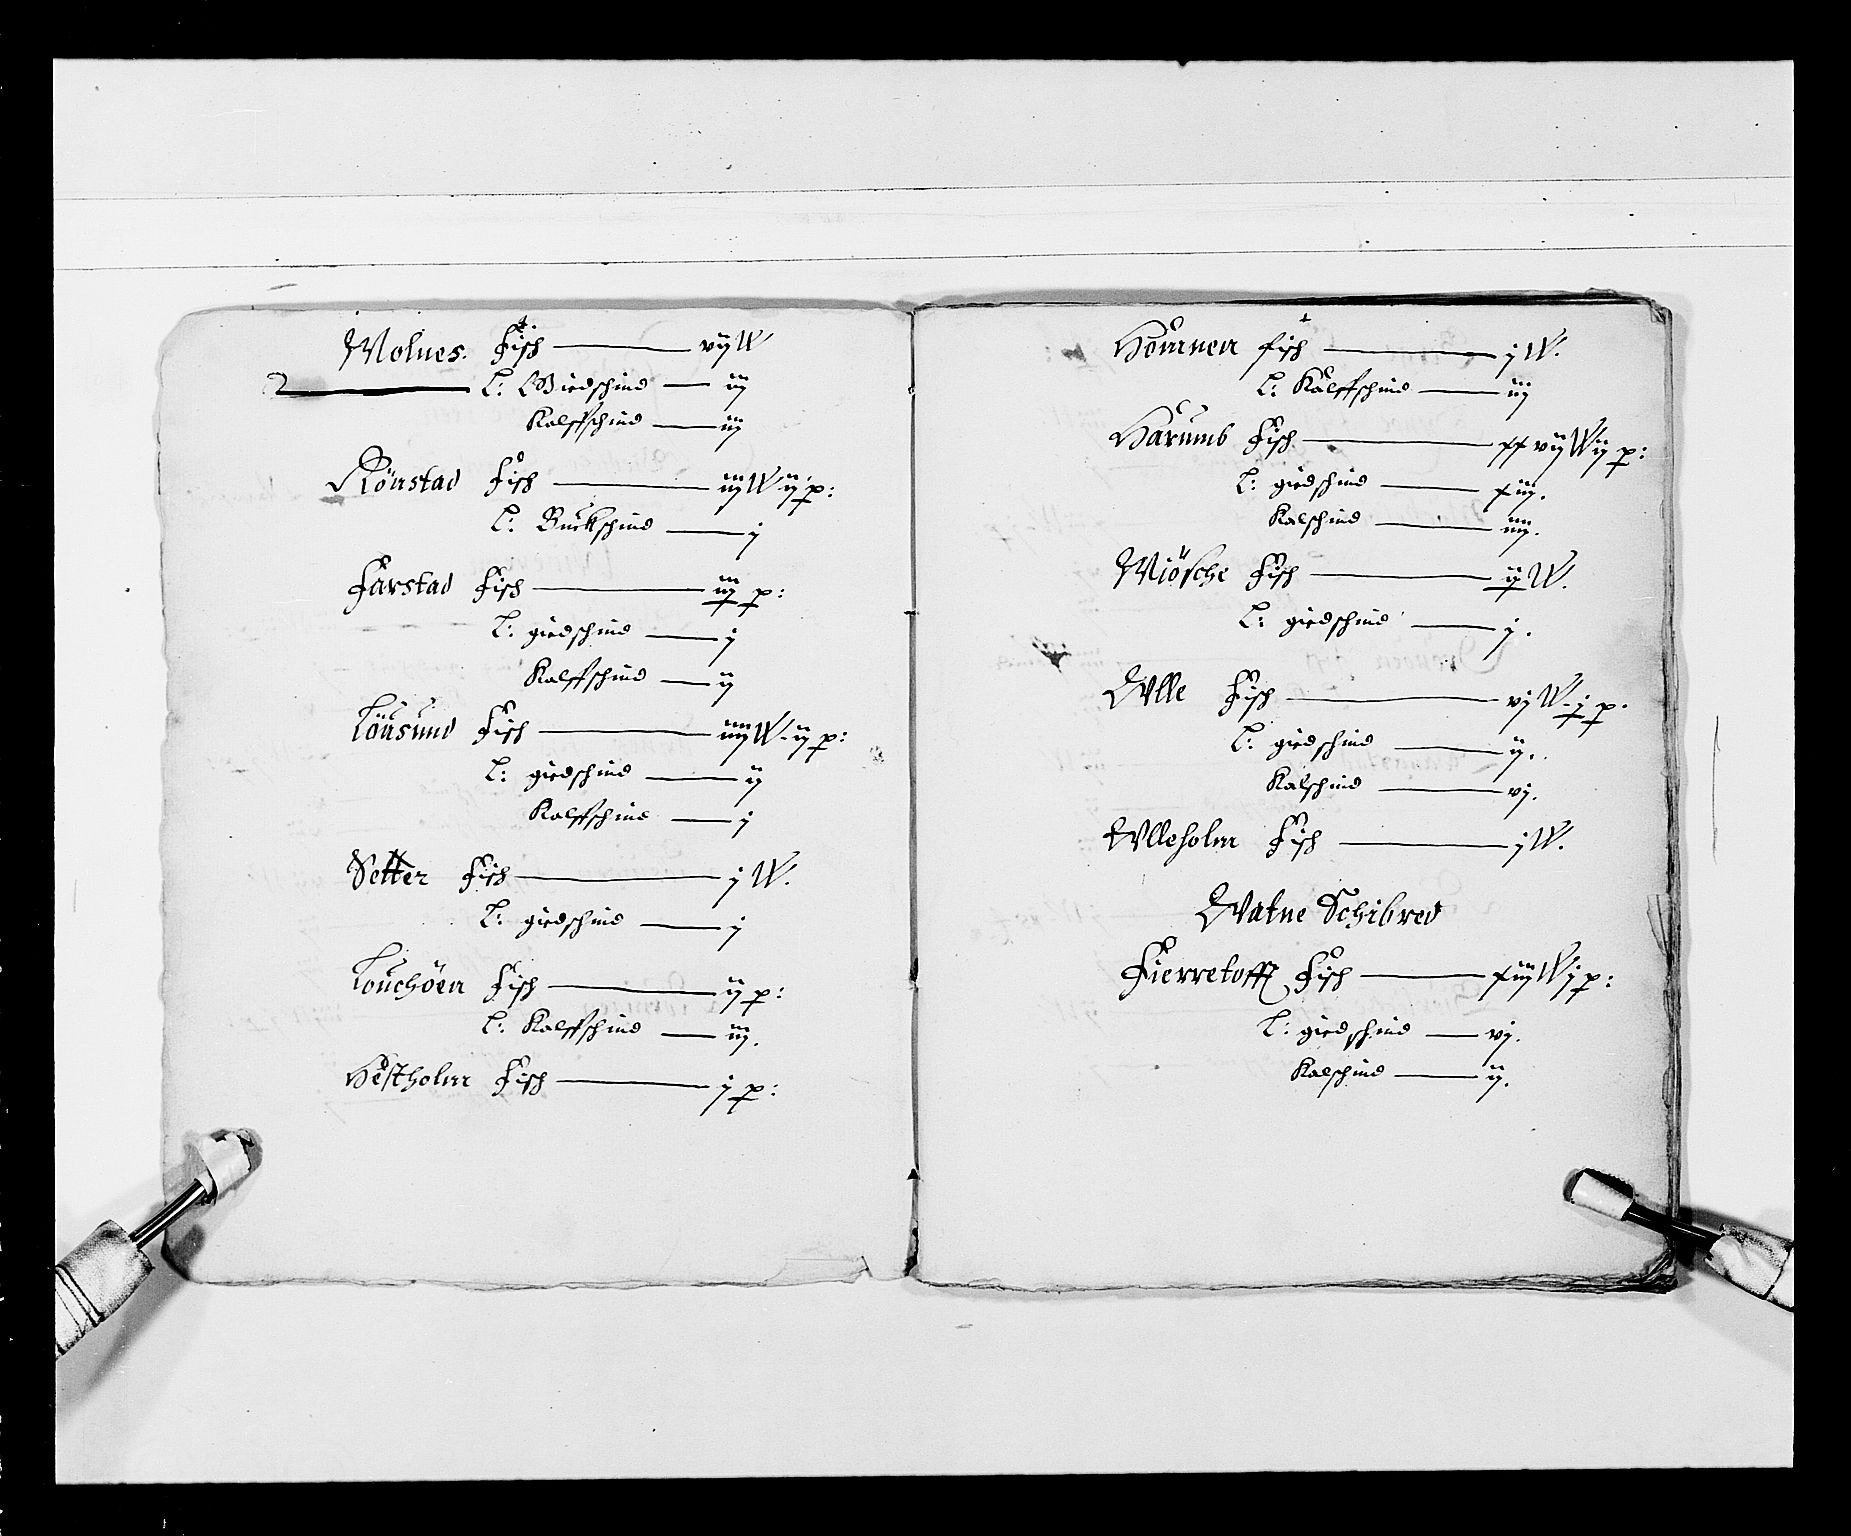 Molnes. Fisch — vij W
L: Giedschind — iij
Kalffschind — iij
Rönstad Fisch — iij W ij p:
L: Buckschind — j
Farstad Fisch — iij p:
L: giedschind — j
Kalffschind — ij
Lönsund Fisch — iiij W - ij p:
L: giedschind — ij
Kalffschind — j
Setter Fisch — j W.
L: giedschind — j
Louchöen Fisch — ij p:
L: Kalffschind — iij.
Hestholm Fisch — j p:
Hömnen fisch — j W.
L: Kalffschind — iij
Harums Fisch — xx vij W ij p:
L: giedschind — xiij.
Kalschind — iiij.
Miösche Fisch — ij W.
L: giedschind — j.
Wlle Fisch — vj W - j p.
L: giedschind — ij.
Kalschind — vj.
Wlleholm Fisch — j W.
Watne Schibred
Fierretofft Fisch — xiij W j p:
L: giedschind — vj.
Kalschind — ij.